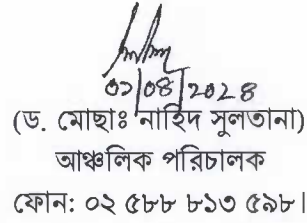 ০১/০৪/২০২৪
(ড. মোছাঃ নাহিদ সুলতানা)
আঞ্চলিক পরিচালক
ফোন: ০২ ৫৮৮ ৮১৩ ৫৯৮|